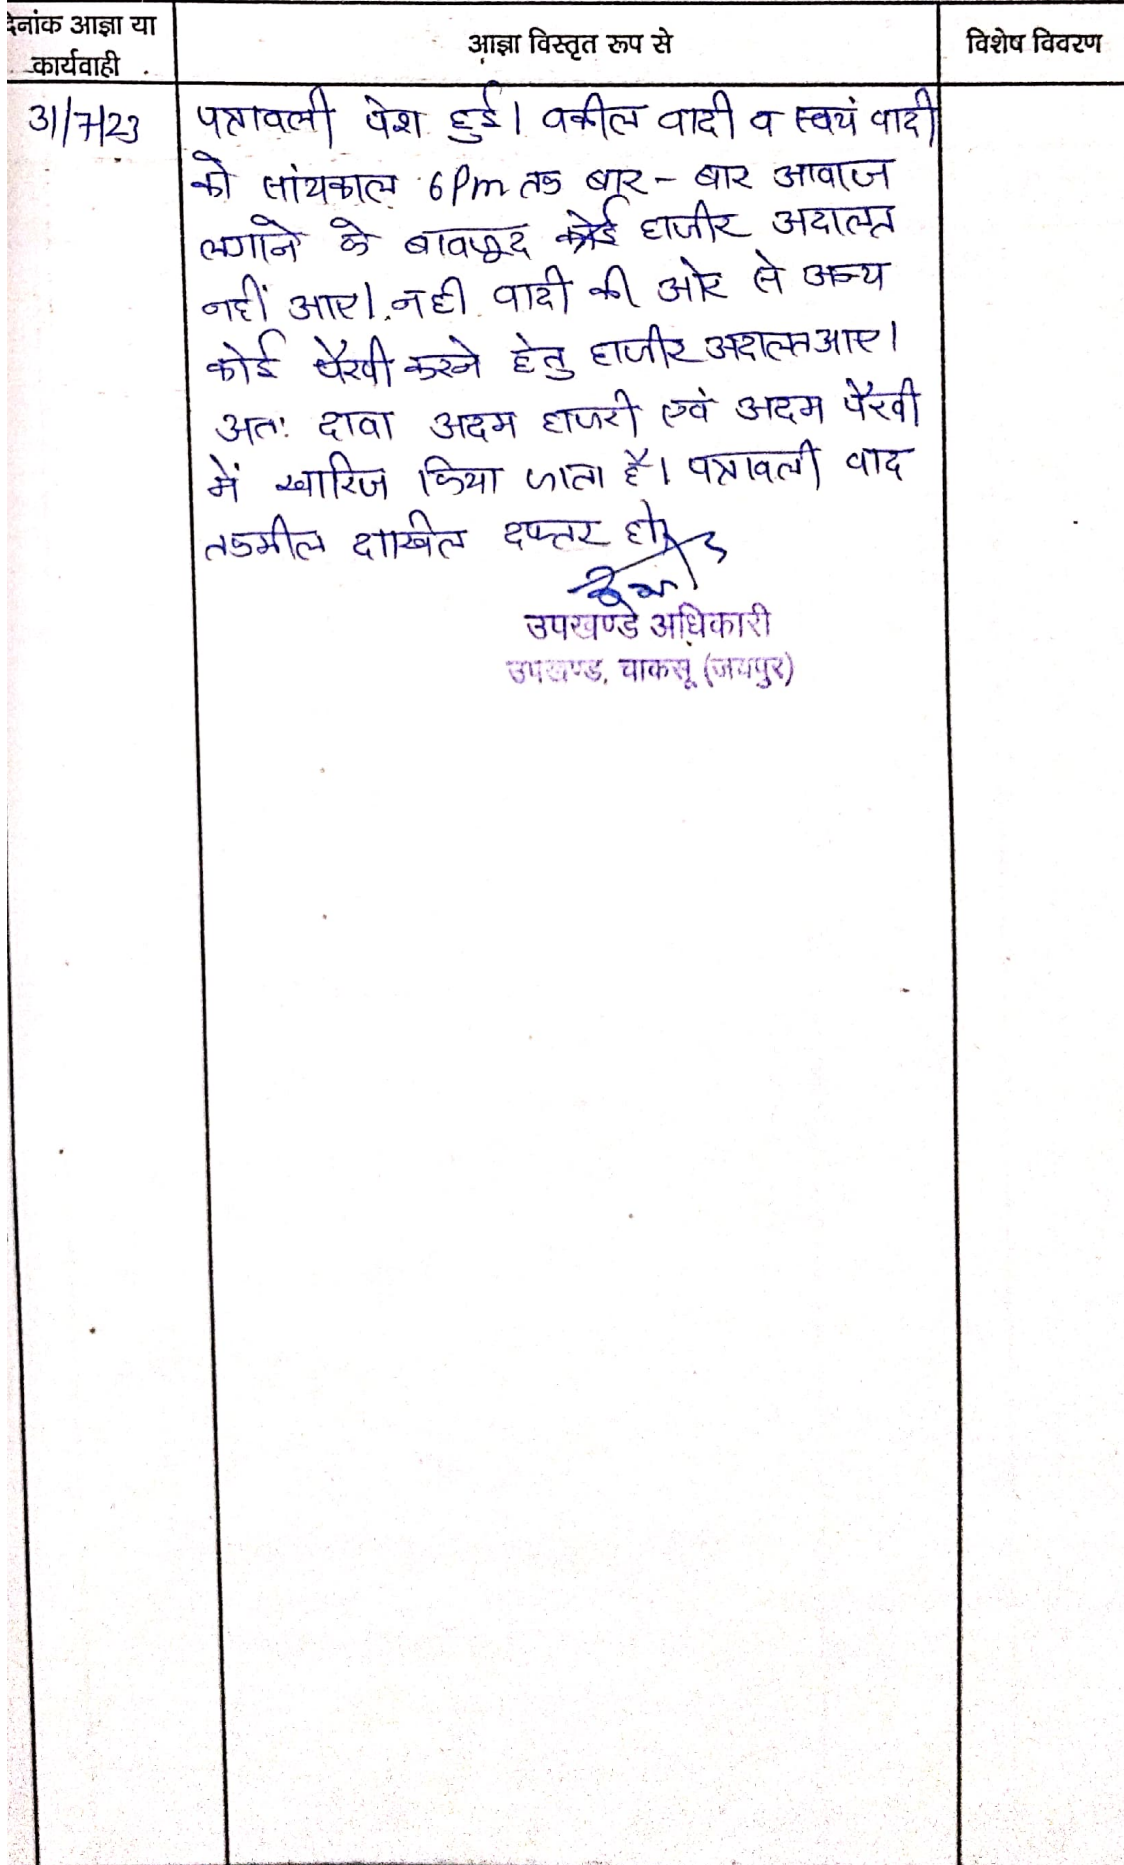 दिनांक आज्ञा या
कार्यवाही
आज्ञा विस्तृत रूप से
विशेष विवरण
31/7/23
पत्रावली पेश हुई। वकील वादी व स्वयं वादी
को सांयकाल 6Pm तक बार-बार आवाज
लगाने के बावजूद कोई हाजीर अदालत
नहीं आए। नही वादी की ओर से अन्य
कोई पैरवी करने हेतु हाजीर अदालत आए।
अतः दावा अदम हाजरी एवं अदम पैरवी
में खारिज किया जाता है। पत्रावली वाद
तकमील दाखिल दफ्तर हो।
उपखण्ड अधिकारी
उपखण्ड, चाकसू (जयपुर)